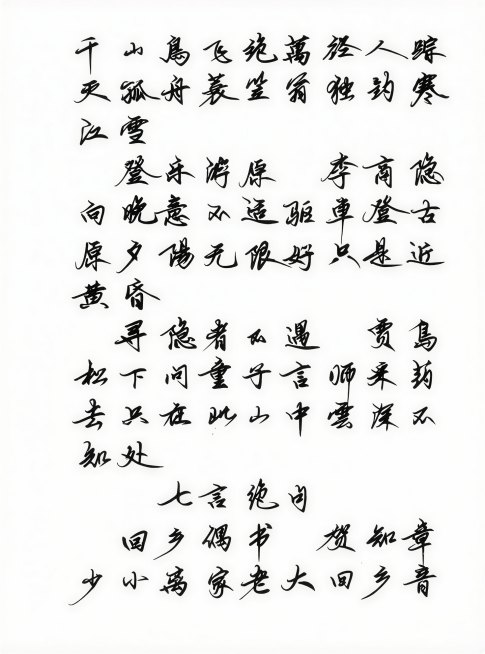 千山鳥飞绝萬径人踪
灭孤舟蓑笠翁独钓寒
江雪
登乐游原 李商隐
向晚意不适驱車登古
原夕陽无限好只是近
黄昏
寻隐者不遇 贾島
松下问童子言师采药
去只在此山中雲深不
知处
七言绝句
回乡偶书 贺知章
少小离家老大回乡音